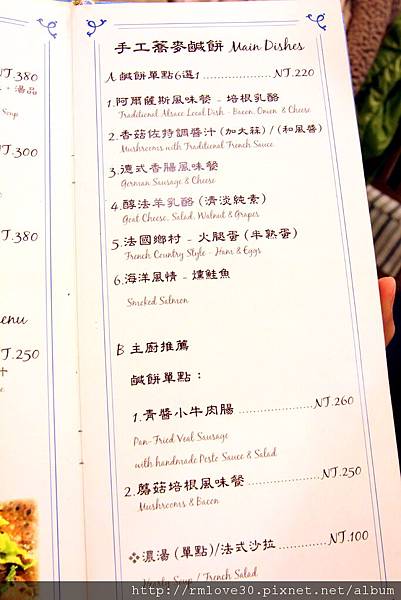 NT.380
湯品
Soup
NT.300
NT.380
Menu
NT.250
手工蕎麥鹹餅 Main Dishes
A 鹹餅單點6選1..................NT.220
1.阿爾薩斯風味餐 - 培根乳酪
Traditional Alsace Local Dish - Bacon, Onion & Cheese
2.香菇佐特調醬汁 (加大蒜) / (和風醬)
Mushrooms with Traditional French Sauce
3.德式香腸風味餐
German Sausage & Cheese
4.醇法羊乳酪 (清淡純素)
Goat Cheese, Salad, Walnut & Grapes
5.法國鄉村 - 火腿蛋 (半熟蛋)
French Country Style - Ham & Eggs
6.海洋風情 - 燻鮭魚
Smoked Salmon
B 主廚推薦
鹹餅單點：
1.青醬小牛肉腸 ..................NT.260
Pan-Fried Veal Sausage
with handmade Pesto Sauce & Salad
2.蘑菇培根風味餐..................NT.250
Mushrooms & Bacon
❖濃湯 (單點)/法式沙拉..................NT.100
Hearty Soup / French Salad
http://rmlove30.pixnet.net/album